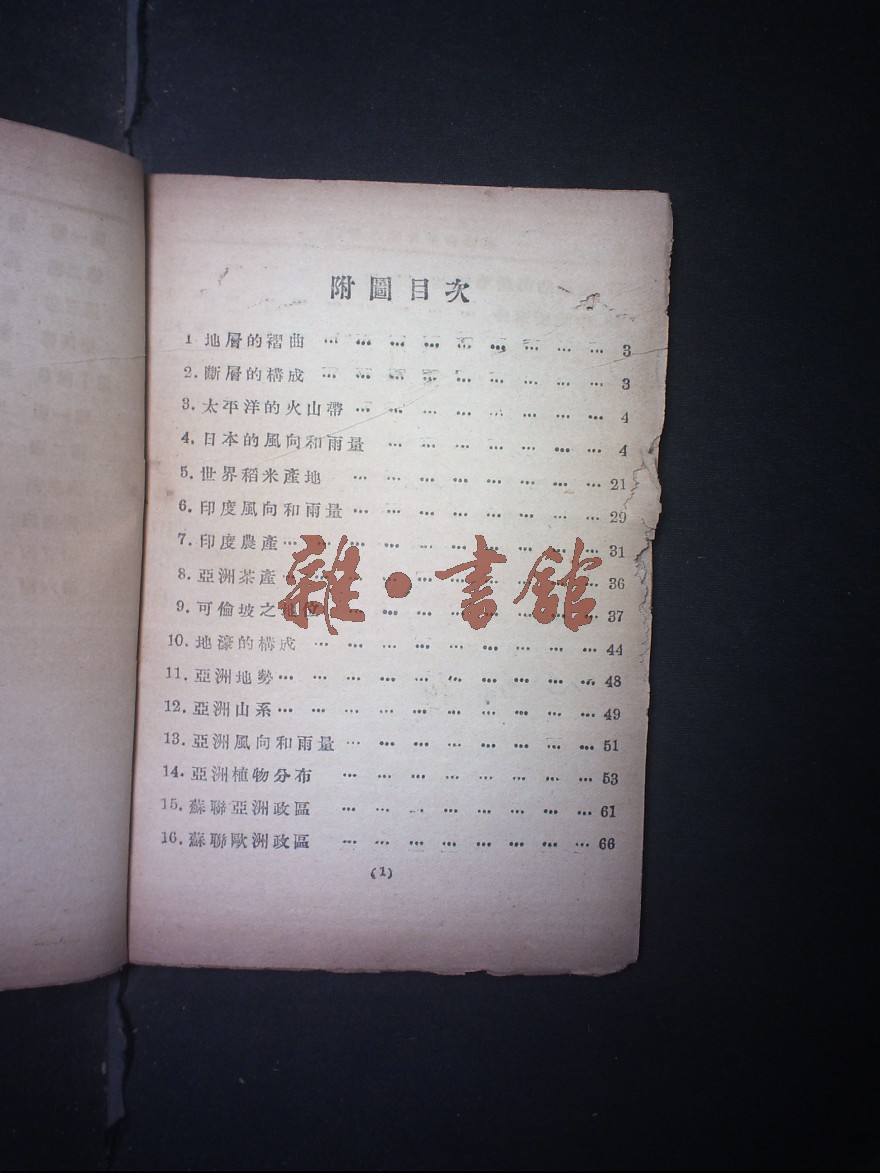 附圖目次
1 地層的褶曲 … … … … … … … … … 3
2. 斷層的構成 … … … … … … … … … 3
3. 太平洋的火山帶 … … … … … … … … 4
4. 日本的風向和雨量 … … … … … … … 4
5. 世界稻米產地 … … … … … … … … 21
6. 印度風向和雨量 … … … … … … … … 29
7. 印度農產 … … … … … … … … … … 31
8. 亞洲茶產 … … … … … … … … … … 36
9. 可倫坡之地位 … … … … … … … … 37
10. 地濠的構成 … … … … … … … … … 44
11. 亞洲地勢 … … … … … … … … … … 48
12. 亞洲山系 … … … … … … … … … … 49
13. 亞洲風向和雨量 … … … … … … … … 51
14. 亞洲植物分布 … … … … … … … … 53
15. 蘇聯亞洲政區 … … … … … … … … 61
16. 蘇聯歐洲政區 … … … … … … … … 66
(1)
雜·書館